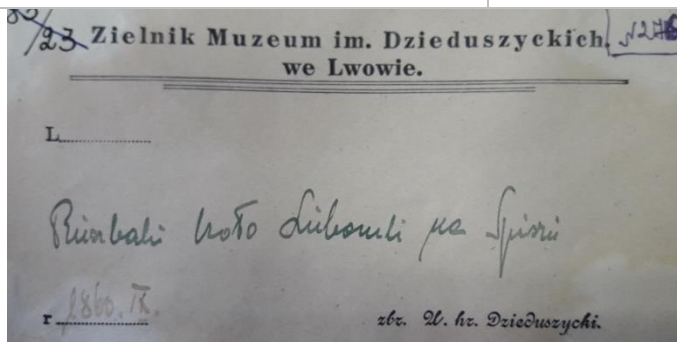 /23 Zielnik Muzeum im. Dzieduszyckich
we Lwowie.
L
koło Lubowli na Spiszu
r 1860. IX.
zbr. W. hr. Dzieduszycki.